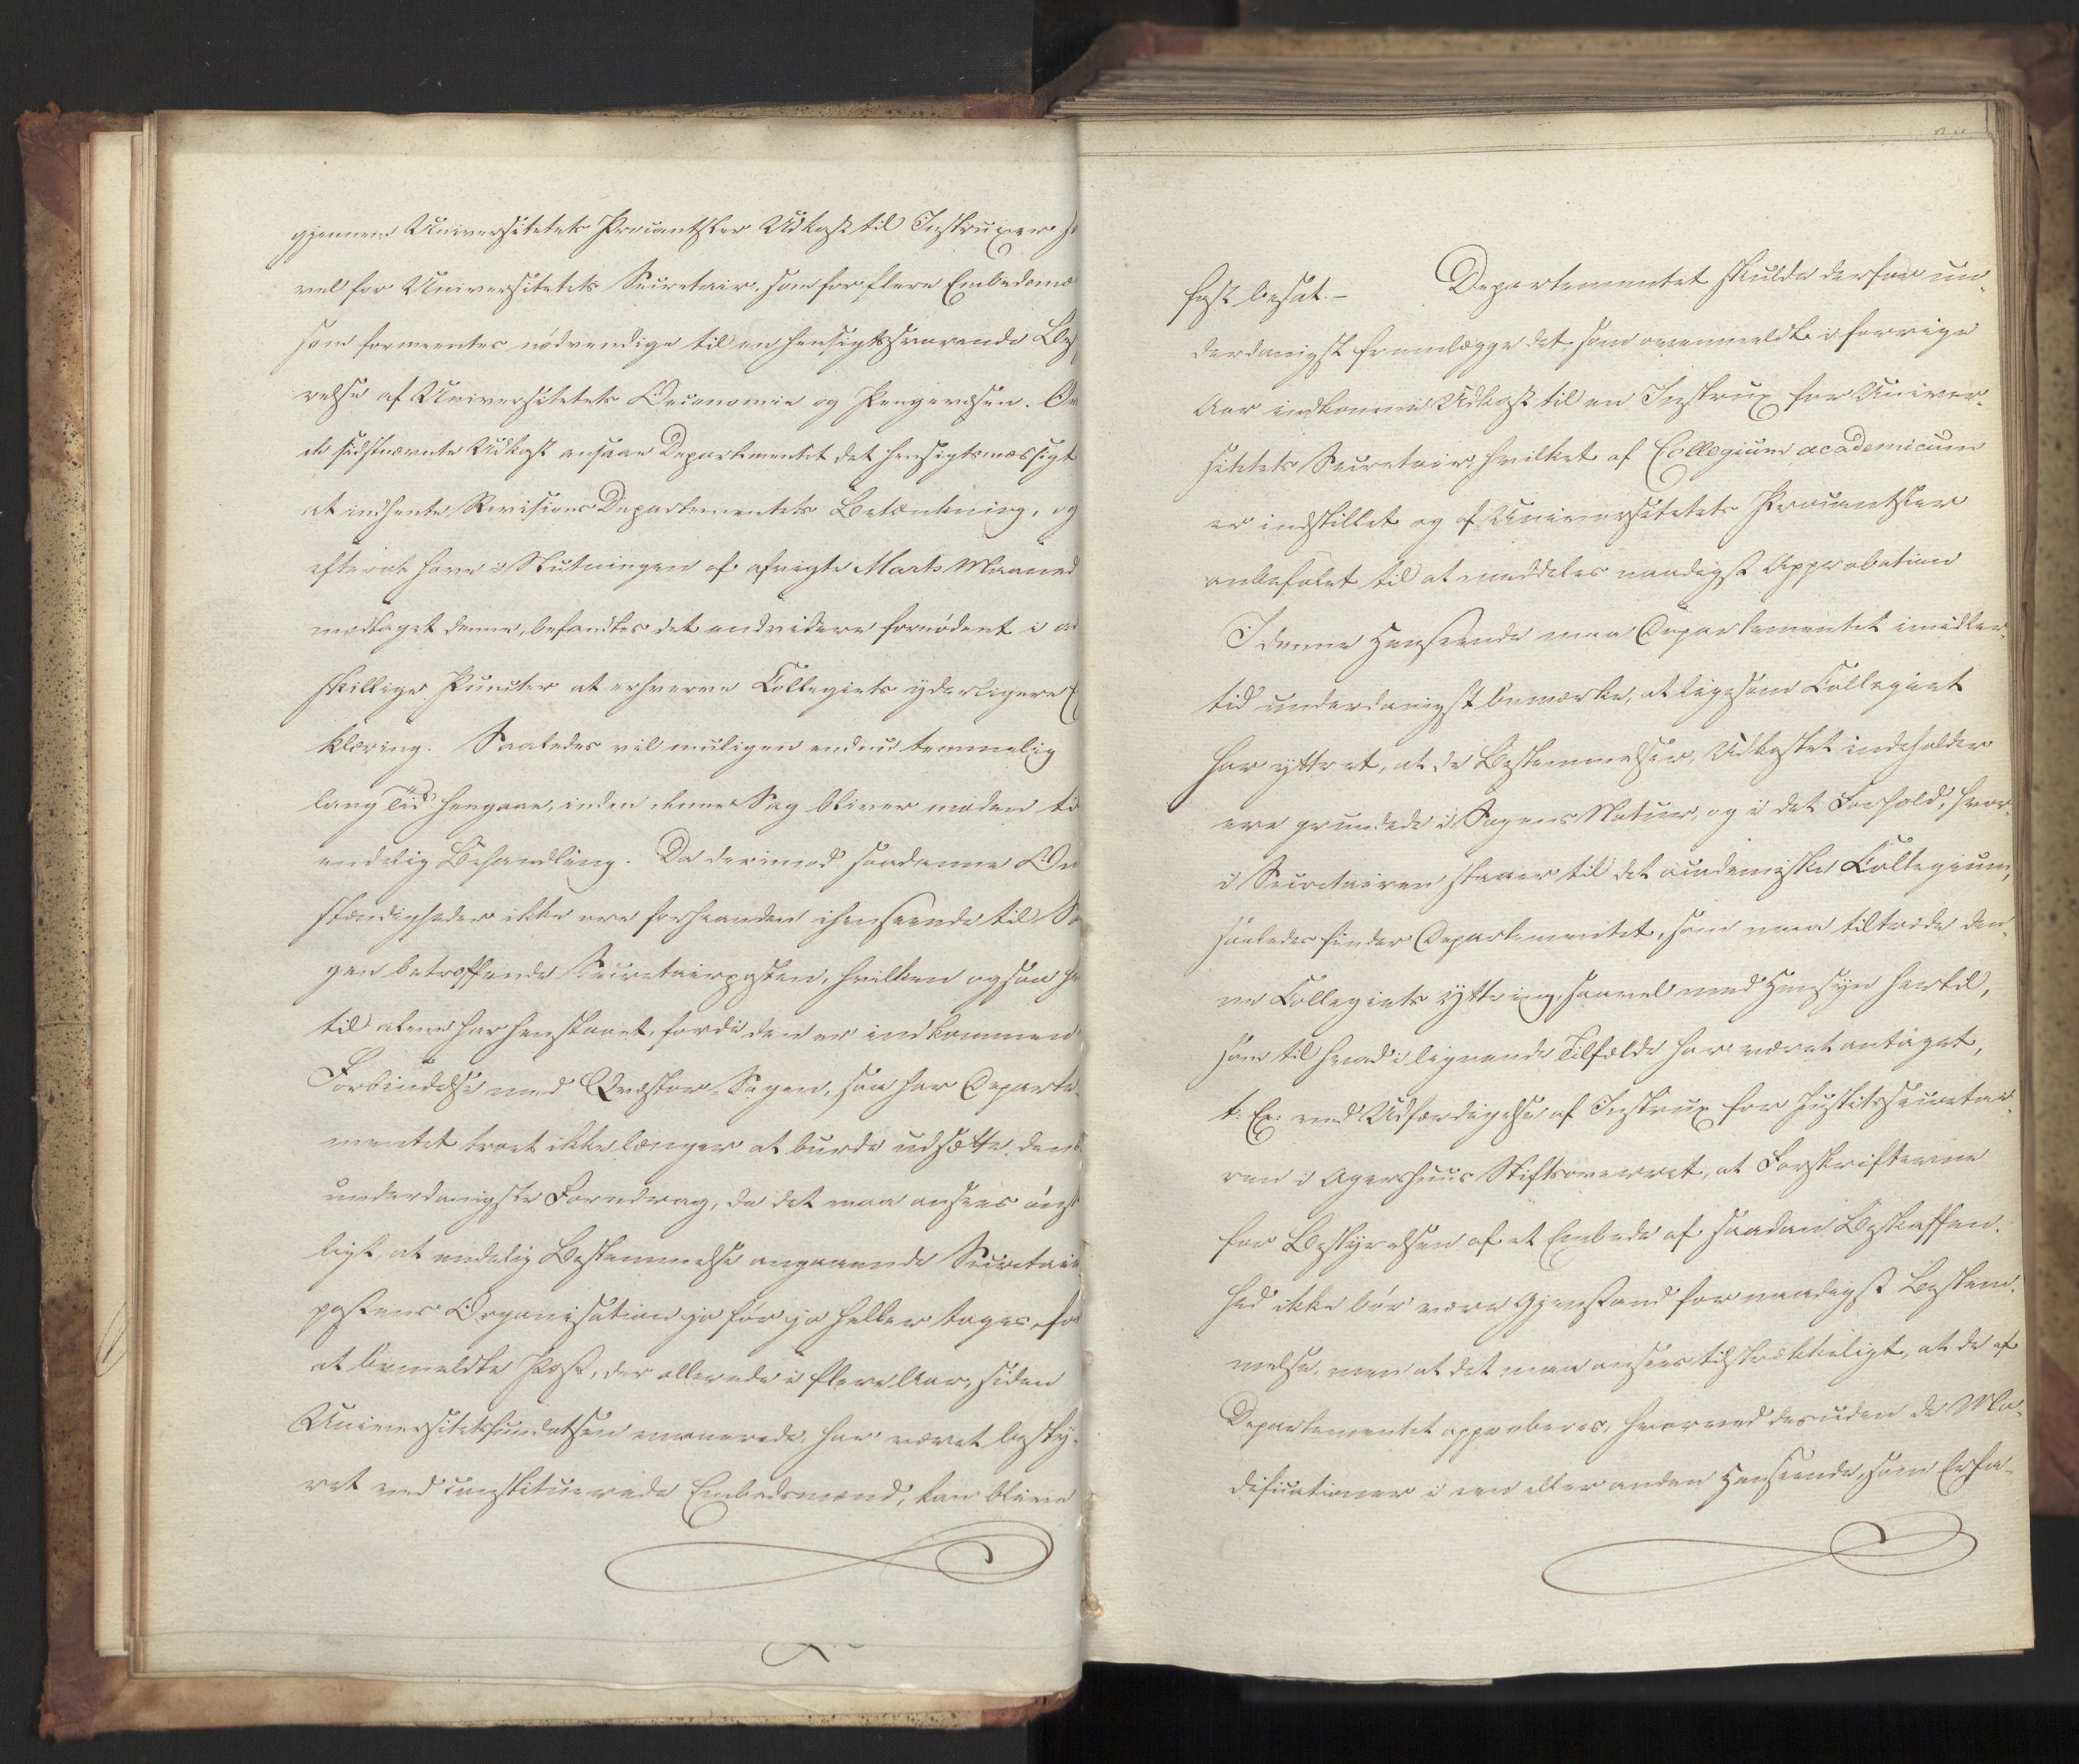 gjennem Universitetets Procantsler Udkast til Instruxer s
vel for Universitetets Secretair, som for flere Embedsmæ
som formeentes nödvendige til en hensigtssvarende Be
relse af Universitetets Oeconomie og Pengevæsen. Ov
de sidstnævnte Udkast ansaae Departementet det hensigtsmæssigt
at indhente Revisions Departementets Betænkning, og
efterat have i Slutningen af afvigte Marts Maaned
modtaget denne, befandtes det endvidere fornödent i ad
skillige Puncter at erhverve Collegiets yderligere E
klæring. Saaledes vil muligen endnu temmelig
lang Tid hengaae, inden denne Sag bliver moden til
endelig Behandling. Da derimod saadanne Om
stændigheder ikke ere forhaanden ihenseende til Sa
gen betræffende Secretairposten, hvilken ogsaa he
til alene har henstaaet, fordi den er indkommen
Forbindelse med Qvæstor-Sagen, saa har Departe-
mentet troet ikke længer at burde udsætte det
underdanigste Foredrag, da det maa ansees önske
ligt, at endelig Bestemmelse angaaende Secretair
postens Organisation jo för jo heller tages, for
at bemeldte Post, der allerede i flere Aar, siden
Universitetsfundatsen emanerede, har været besty-
ret ved constituerede Embedsmænd, kan blive
fast besat.— Departementet skulde derfor un-
derdanigst fremlægge det, som ovenmeldt, i forrige
Aar indkomne Udkast til en Instrux for Univer-
sitetets Secretair, hvilket af Collegium academicum
er indstillet og af Universitetets Procantsler
anbefalet til at meddeles naadigst Approbation
I denne Henseende maa Departementet imidler-
tid underdanigst bemærke, at ligesom Collegiet
har yttret, at de Bestemmelser, Udkastet indeholder
ere grundede i Sagens Natur, og i det Forhold, hvor-
i Secretairen staaer til det academiske Collegium,
saaledes finder Departementet, som maa tiltræde den-
ne Collegiets Yttring, saavel med Hensyn hertil,
som til hvad i lignende Tilfælde har været antaget,
t: Ex: ved Udfærdigelse af Instrux for Justitssecretai-
ren i Agershuus Stiftsoverret, at Forskrifterne
for Bestyrelsen af et Embede af saadan Beskaffen-
hed ikke bör være Gjenstand for naadigst Bestem-
melse, men at det maa ansees tilstrækkeligt, at de af
Departementet approberes, hvorved desuden de Mo-
dificationer i een eller anden Henseende, som Erfa-